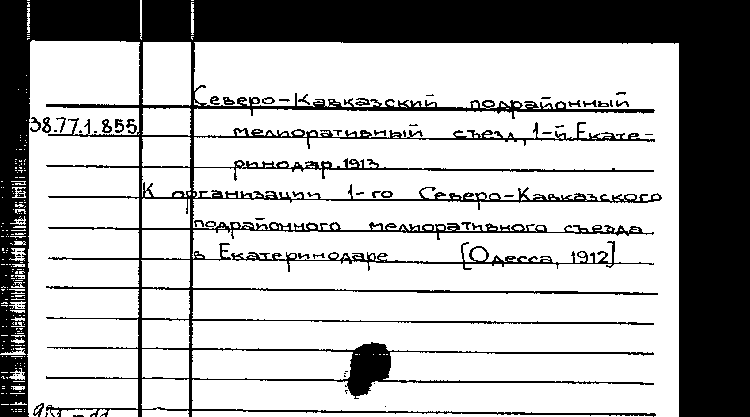 Северо-Кавказский подрайонный
38.77.1.855 мелиоративный съезд, 1-й. Екате-
ринодар. 1913.
К организации 1-го Северо-Кавказского
подрайонного мелиоративного съезда
в Екатеринодаре. [Одесса, 1912].